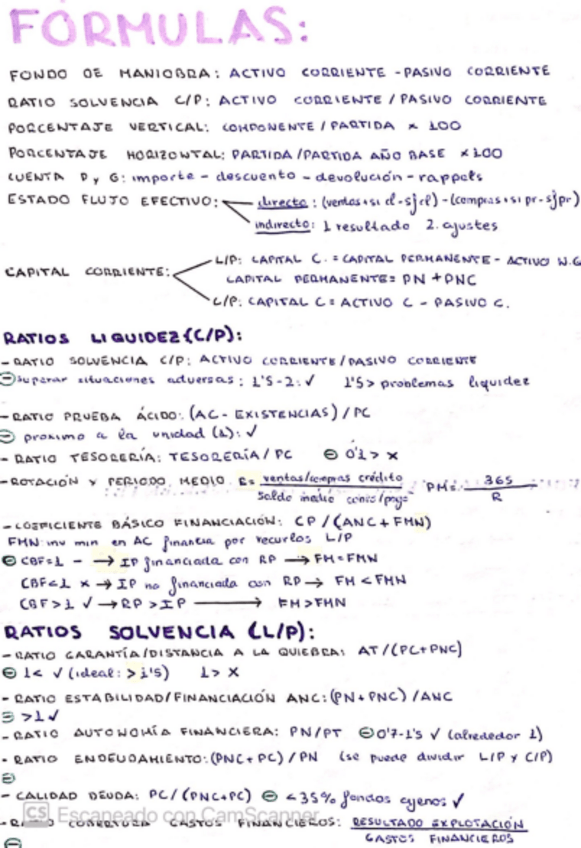 FORMULAS:
FONDO DE MANIOBRA: ACTIVO CORRIENTE - PASIVO CORRIENTE
RATIO SOLVENCIA C/P: ACTIVO CORRIENTE / PASIVO CORRIENTE
PORCENTAJE VERTICAL: COMPONENTE / PARTIDA × 100
PORCENTAJE HORIZONTAL: PARTIDA / PARTIDA AÑO BASE × 100
CUENTA P y G: importe - descuento - devolución - rappels
ESTADO FLUJO EFECTIVO: directo: (ventas + si cl - sf cl) - (compras + si pr - sf pr)
indirecto: 1 resultado 2. ajustes
L/P: CAPITAL C. = CAPITAL PERMANENTE - ACTIVO N.C
CAPITAL CORRIENTE: CAPITAL PERMANENTE = PN + PNC
L/P: CAPITAL C = ACTIVO C - PASIVO C.
RATIOS LIQUIDEZ (C/P):
- RATIO SOLVENCIA C/P: ACTIVO CORRIENTE / PASIVO CORRIENTE
⊖ Superar situaciones adversas: 1'5 - 2: ✓ 1'5 > problemas liquidez
- RATIO PRUEBA ÁCIDO: (AC - EXISTENCIAS) / PC
⊖ proximo a la unidad (1): ✓
- RATIO TESORERÍA: TESORERÍA / PC ⊖ 0'1 > ×
- ROTACIÓN Y PERIODO MEDIO R = ventas/compras crédito PM = 365
Saldo medio R
- COEFICIENTE BÁSICO FINANCIACIÓN: CP / (ANC + FMN)
FMN inv min en AC financia por recursos L/P
⊖ CBF = 1 - → IP financiada con RP → FM = FMN
CBF < 1 × → IP no financiada con RP → FM < FMN
CBF > 1 ✓ → RP > IP → FM > FMN
RATIOS SOLVENCIA (L/P):
- RATIO GARANTÍA/DISTANCIA A LA QUIEBRA: AT / (PC + PNC)
⊖ 1 < ✓ (ideal: > 1'5) 1 > ×
- RATIO ESTABILIDAD/FINANCIACIÓN ANC: (PN + PNC) / ANC
⊖ > 1 ✓
- RATIO AUTONOMÍA FINANCIERA: PN/PT ⊖ 0'7 - 1'5 ✓ (alrededor 1)
- RATIO ENDEUDAMIENTO: (PNC + PC) / PN (se puede dividir L/P y C/P)
⊖
- CALIDAD DEUDA: PC / (PNC + PC) ⊖ < 35% fondos ajenos ✓
CS Escaneado con CamScanner
- RATIO COBERTURA GASTOS FINANCIEROS: RESULTADO EXPLOTACIÓN
⊖ GASTOS FINANCIEROS